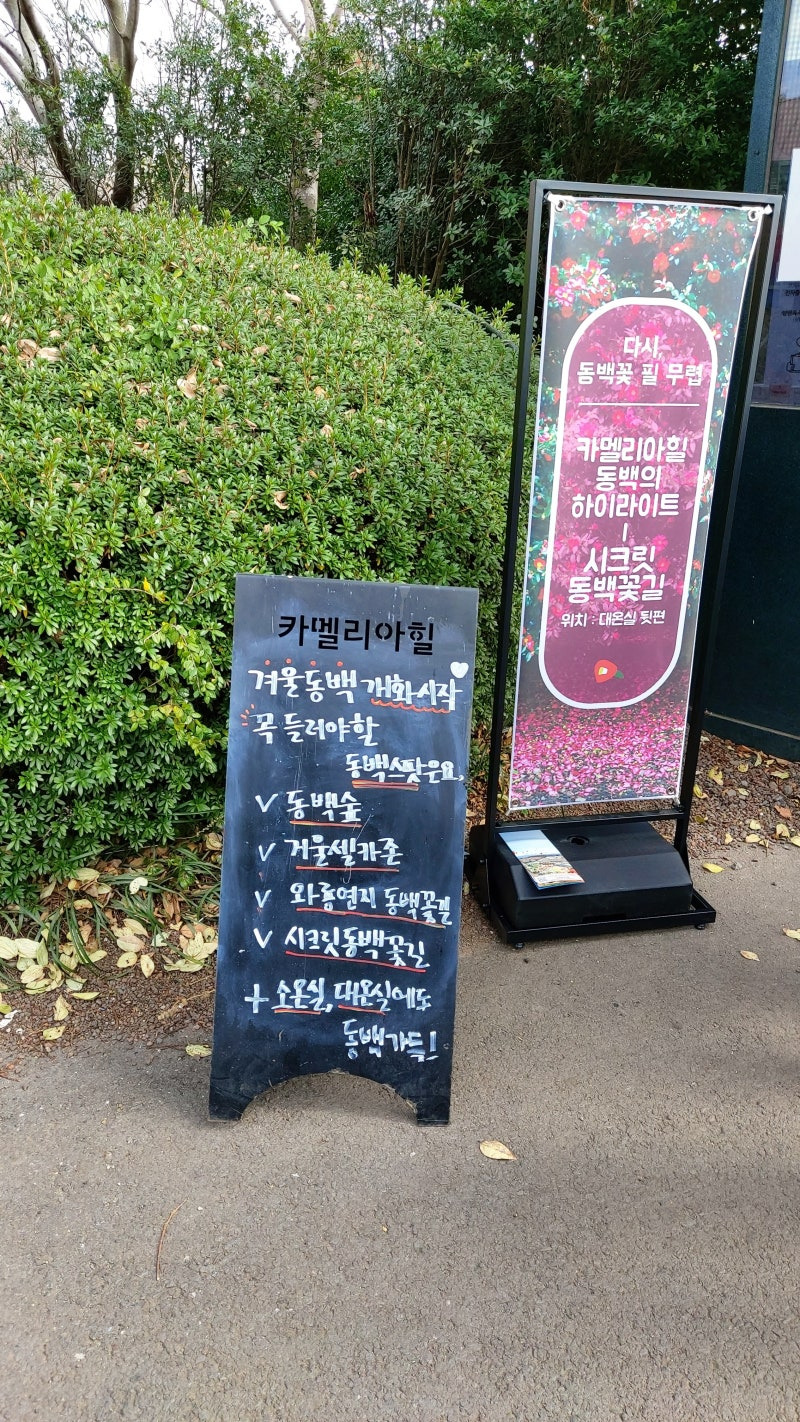 카멜리아힐
겨울동백 개화시작
꼭 들러야할
동백스팟은요,
v 동백숲
v 겨울셀카존
v 와룡연지 동백꽃길
v 시크릿동백꽃길
+ 소온실, 대온실에도
동백가득!
다시,
동백꽃 필 무렵
카멜리아힐
동백의
하이라이트
-
시크릿
동백꽃길
위치 : 대온실 뒷편